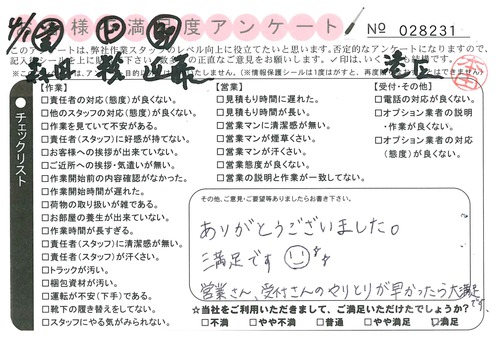 お客様満足度アンケート
No 028231
このアンケートは、弊社作業スタッフのレベル向上に役立てたいと思います。否定的なアンケートになりますので、
※このアンケートは、
港区
チェックリスト
【作業】
□責任者の対応(態度)が良くない。
□他のスタッフの対応(態度)が良くない。
□作業を見ていて不安がある。
□責任者(スタッフ)に好感が持てない。
□お客様への挨拶が出来ていない。
□ご近所への挨拶・気遣いが無い。
□作業開始前の内容確認がなかった。
□作業開始時間が遅れた。
□荷物の取り扱いが雑である。
□お部屋の養生が出来ていない。
□作業時間が長すぎる。
□責任者(スタッフ)に清潔感が無い。
□責任者(スタッフ)が汗くさい。
□トラックが汚い。
□梱包資材が汚い。
□運転が不安(下手)である。
□靴下の履き替えをしてない。
□スタッフにやる気がみられない。
【営業】
□見積もり時間に遅れた。
□見積もり時間が長い。
□営業マンに清潔感が無い。
□営業マンが煙草くさい。
□営業マンが汗くさい。
□営業態度が良くない。
□営業の説明と作業が一致してない。
【受付・その他】
□電話の対応が良くない。
□オプション業者の説明
・作業が良くない。
□オプション業者の対応
(態度)が良くない。
その他、ご意見・ご要望等ありましたらお書き下さい。
ありがとうございました。
満足です
営業さん、受付さんのやりとりが早かったら大満足です。
☆当社をご利用いただきまして、ご満足いただけたでしょうか?
□不満 □やや不満 □普通 □やや満足 □満足